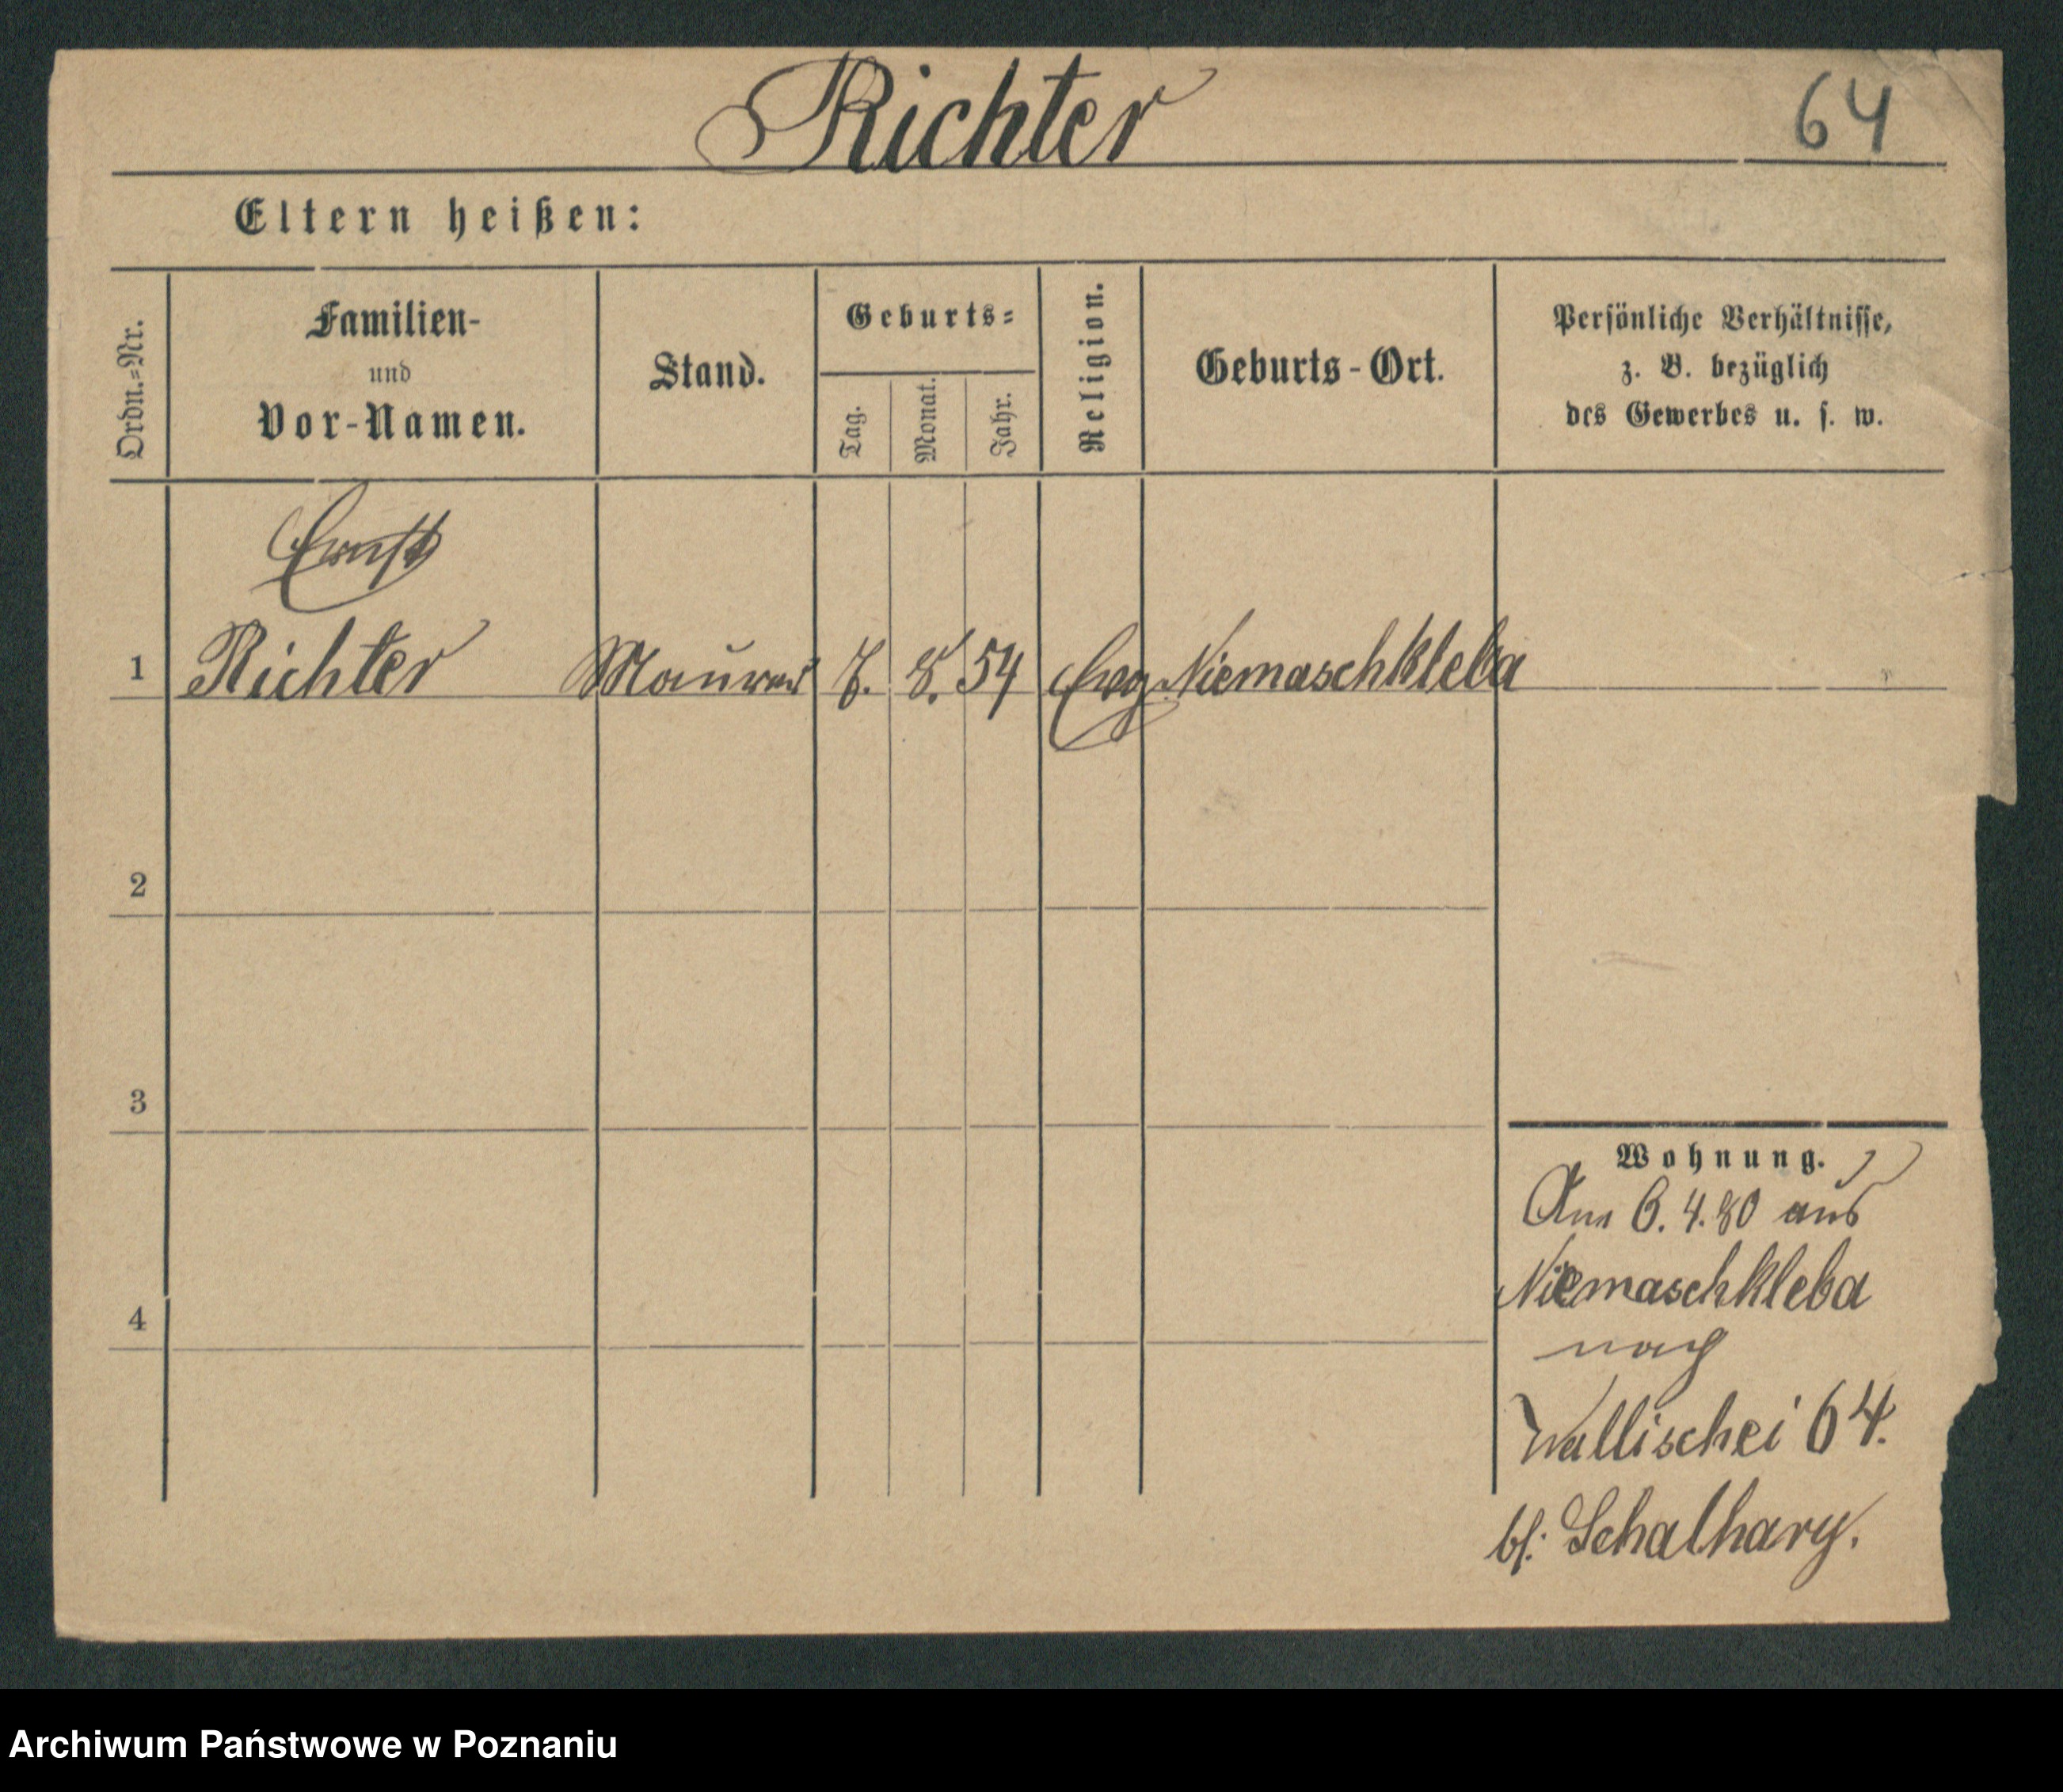 Richter
64
Eltern heißen:
Ordn.-Nr.
Familien-
und
Vor-Namen.
Stand.
Geburts-
Tag.
Monat.
Jahr.
Religion.
Geburts-Ort.
Persönliche Verhältnisse,
z. B. bezüglich
des Gewerbes u. s. w.
Ernst
1 Richter Maurer 7. 8. 54 Evg. Niemaschkleba
2
3
4
Wohnung.
Am 6. 4. 80 aus
Niemaschkleba
nach
Wallischei 64.
bf. Schalhary.
Archiwum Państwowe w Poznaniu